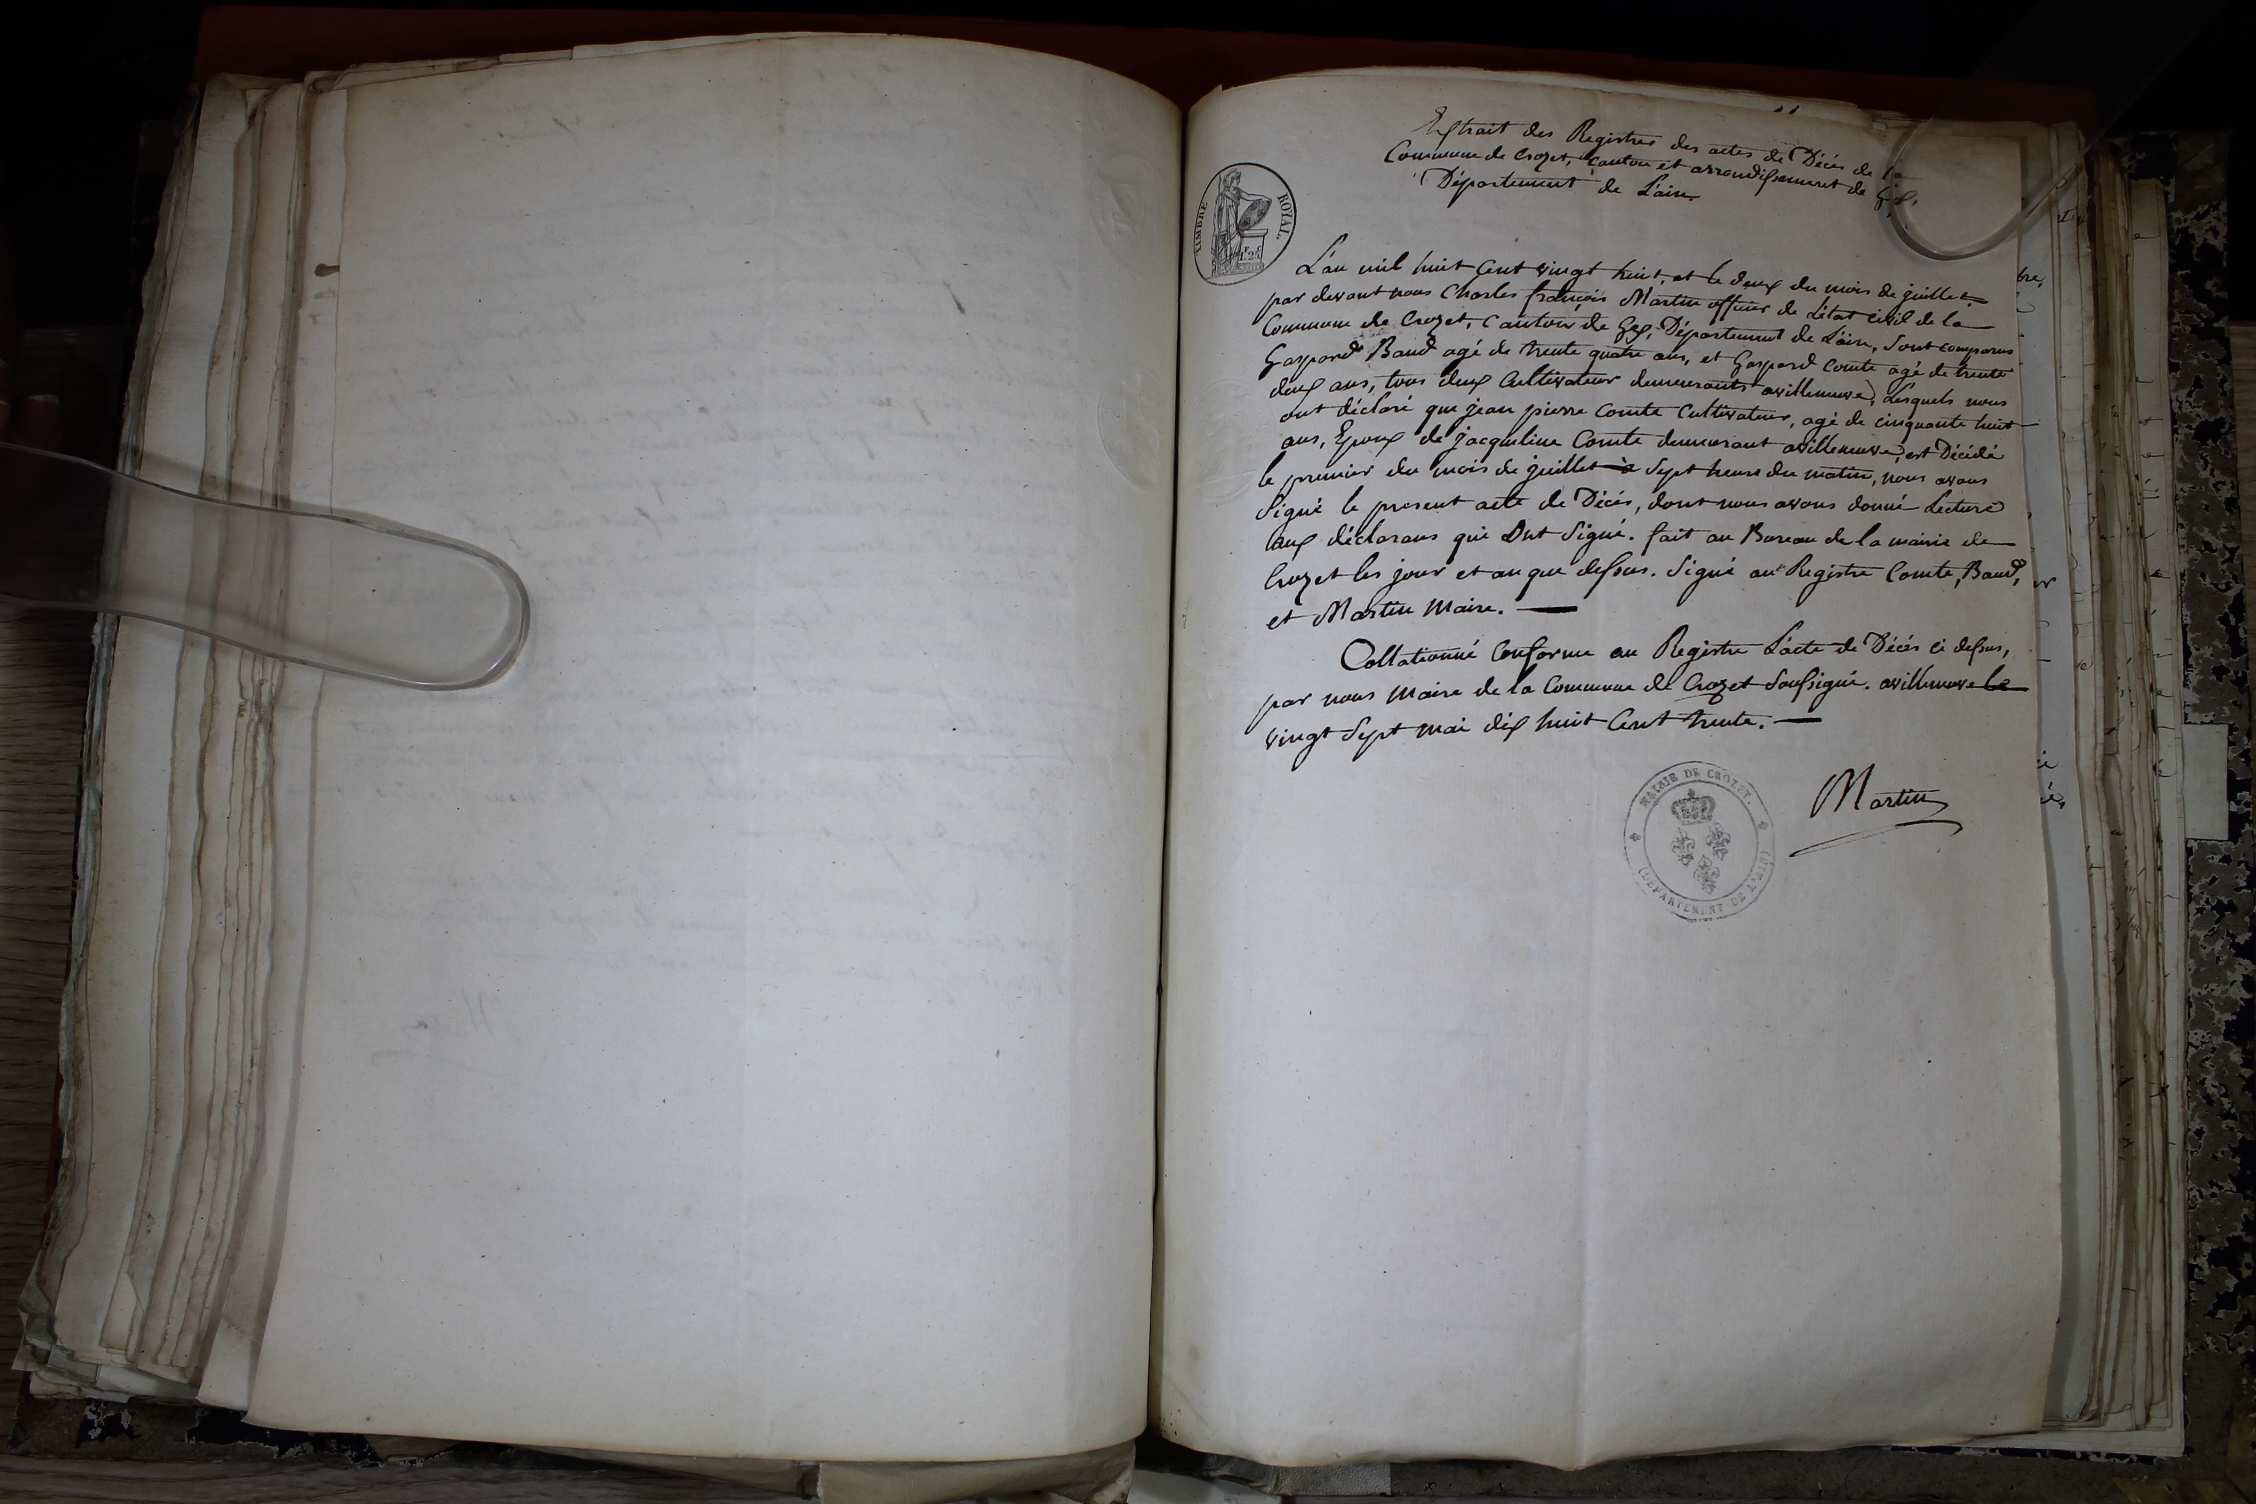 Extrait des Registres des actes de Décés de la
Commune de Crozet, canton et arrondissement de Gex,
Département de L'ain.
TIMBRE ROYAL.
L'an mil huit Cent vingt huit, et le deux du mois de juillet
par devant nous Charles françois Martin officier de L'état civil de la
Commune de Crozet, Canton de Gex, Département de L'ain, sont comparus
Gaspard Baud agé de trente quatre ans, et Gaspard Comte agé de trente
deux ans, tous deux Cultivateur demeurants avilleneuve, Lesquels nous
ont déclaré que jean pierre Comte Cultivateur, agé de cinquante huit
ans, Epoux de jacqueline Comte demeurant avilleneuve, est Décédé
le premier du mois de juillet à Sept heure du matin, nous avons
Signé le present acte de Décés, dont nous avons donné Lecture
aux déclarans qui Ont Signé. fait au Bureau de la mairie de
Crozet les jour et an que dessus. Signé au Registre Comte, Baud,
et Martin Maire.
Collationné Conforme au Registre L'acte de Décés ci dessus,
par nous Maire de la Commune de Crozet Soussigné. avilleneuve le
vingt Sept mai dix huit Cent trente.
Martin
MAIRIE DE CROZET.
(DÉPARTEMENT DE L'AIN)